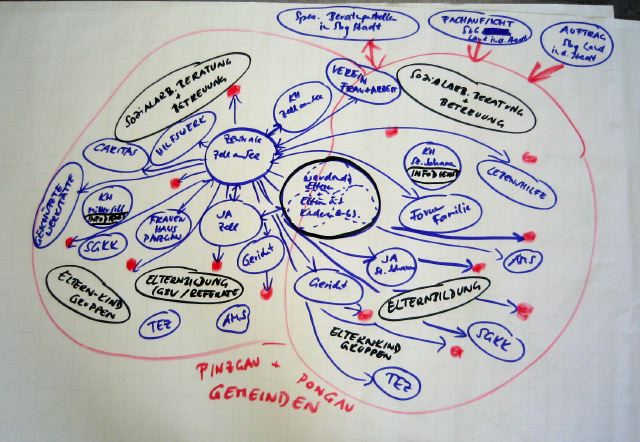 Spez. Beratungsstellen
in Sbg Stadt
FACHAUFSICHT
SbG
Land u. d. Stadt
AUFTRAG
Sbg Land
u. d. Stadt
SOZIALARB. BERATUNG
+
BETREUUNG
KH
Zell am See
VEREIN
FRAU + ARBEIT
SOZIALARB. BERATUNG
+
BETREUUNG
CARITAS
HILFSWERK
Zentrale
Zell am See
KH
St. Johann
INFODIENST
LEBENSHILFE
GESCHÜTZTE
WERKSTÄTTE
KH
Mittersill
INFODIENST
FRAUEN
HAUS
PINZGAU
JA
Zell
werdende
Eltern
+
Eltern
Forum
Familie
SGKK
Gericht
JA
St. Johann
AMS
ELTERN-KIND
GRUPPEN
ELTERNBILDUNG
(GSV / REFERATE
Gericht
ELTERNBILDUNG
TEZ
AMS
ELTERNKIND
GRUPPEN
SGKK
TEZ
PINZGAU + PONGAU
GEMEINDEN